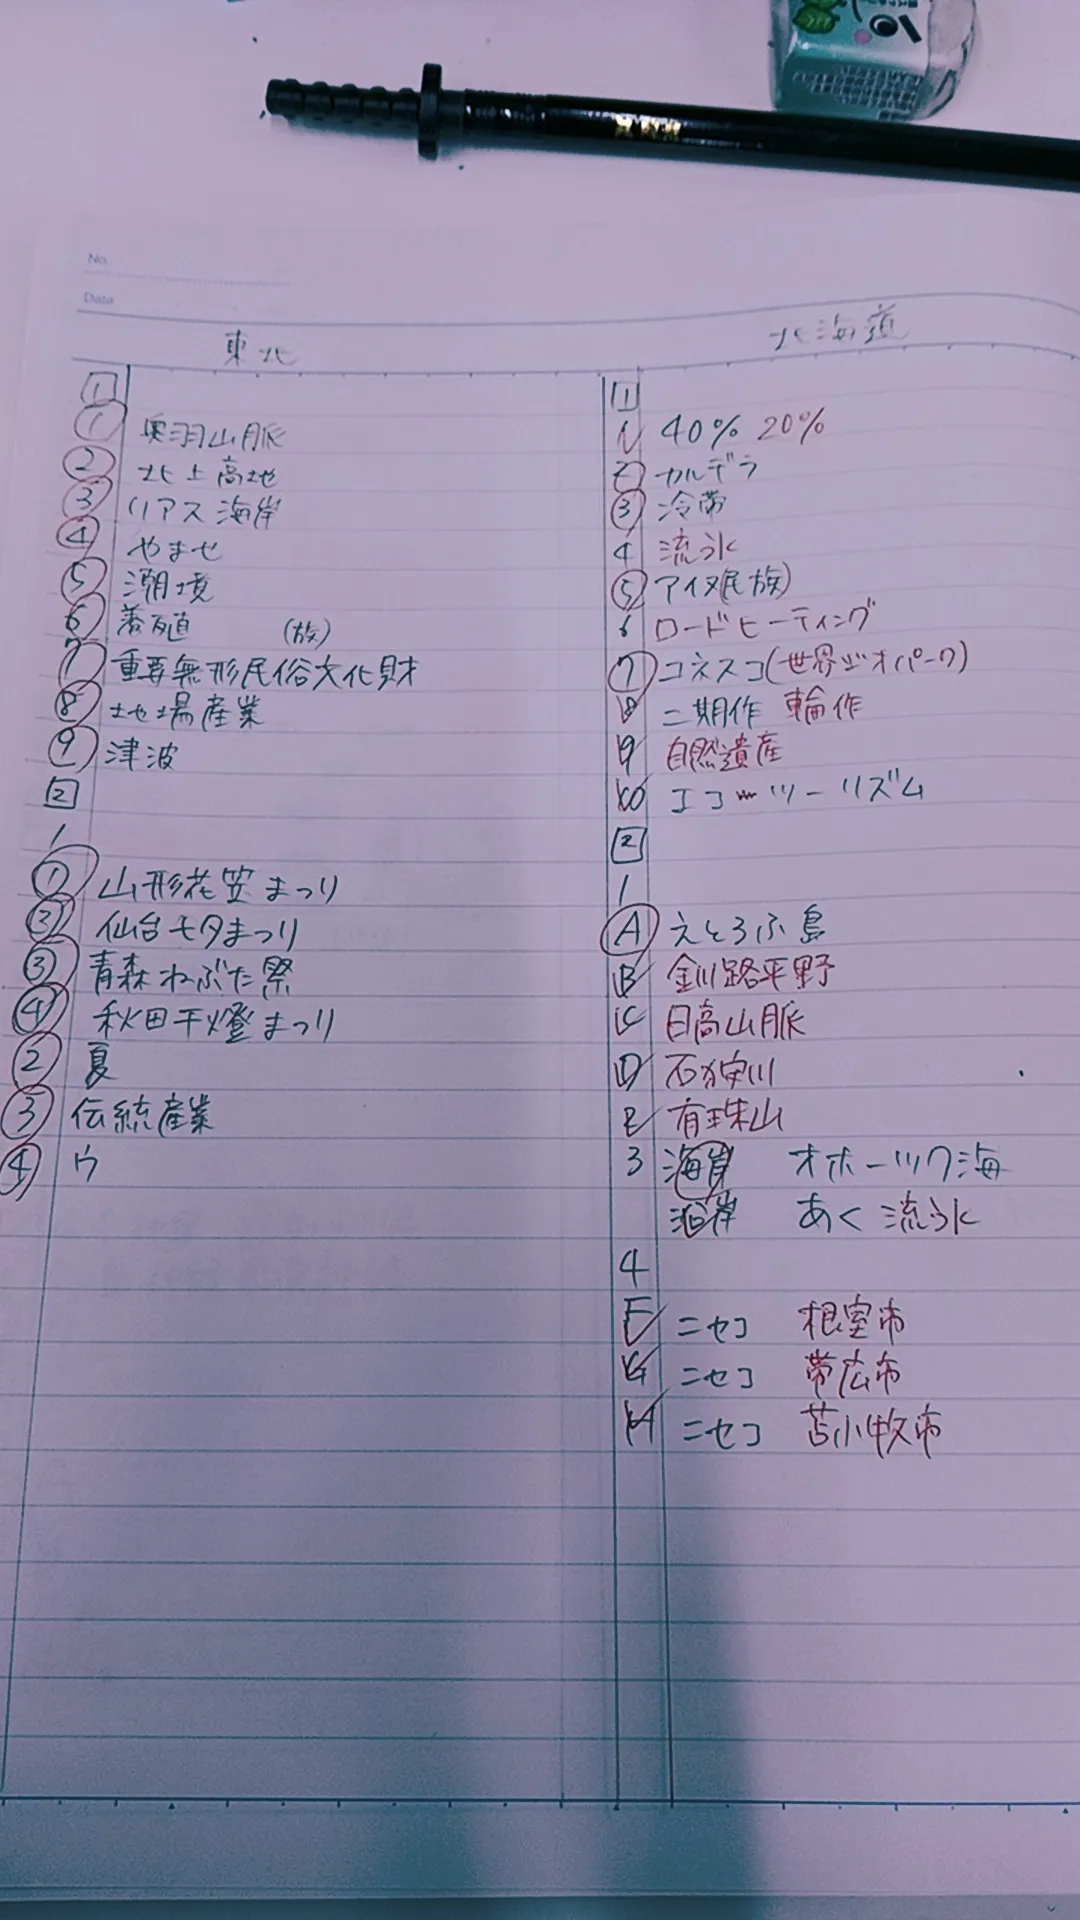 No.
Date
東北
1
① 奥羽山脈
② 北上高地
③ リアス海岸
④ やませ
⑤ 潮境
⑥ 養殖 (族)
7 重要無形民俗文化財
⑧ 地場産業
⑨ 津波
2
1
① 山形花笠まつり
② 仙台七夕まつり
③ 青森ねぶた祭
④ 秋田干燈まつり
② 夏
③ 伝統産業
④ ウ
北海道
1
1 40% 20%
2 カルデラ
③ 冷帯
4 流氷
⑤ アイヌ(民族)
6 ロードヒーティング
⑦ ユネスコ(世界ジオパーク)
8 二期作 輪作
9 自然遺産
10 エコーツーリズム
2
1
A えとろふ島
B 釧路平野
C 日高山脈
D 石狩川
E 有珠山
3 海岸 オホーツク海
沿岸 あく 流氷
4
F ニセコ 根室市
G ニセコ 帯広市
H ニセコ 苫小牧市